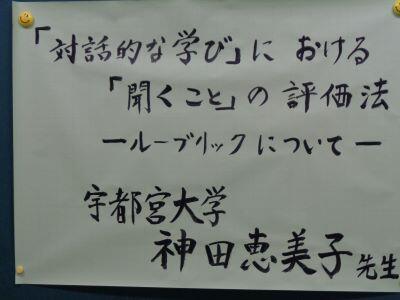 「対話的な学び」に おける
「聞くこと」の 評価法
ールーブリックについてー
宇都宮大学
神田恵美子先生